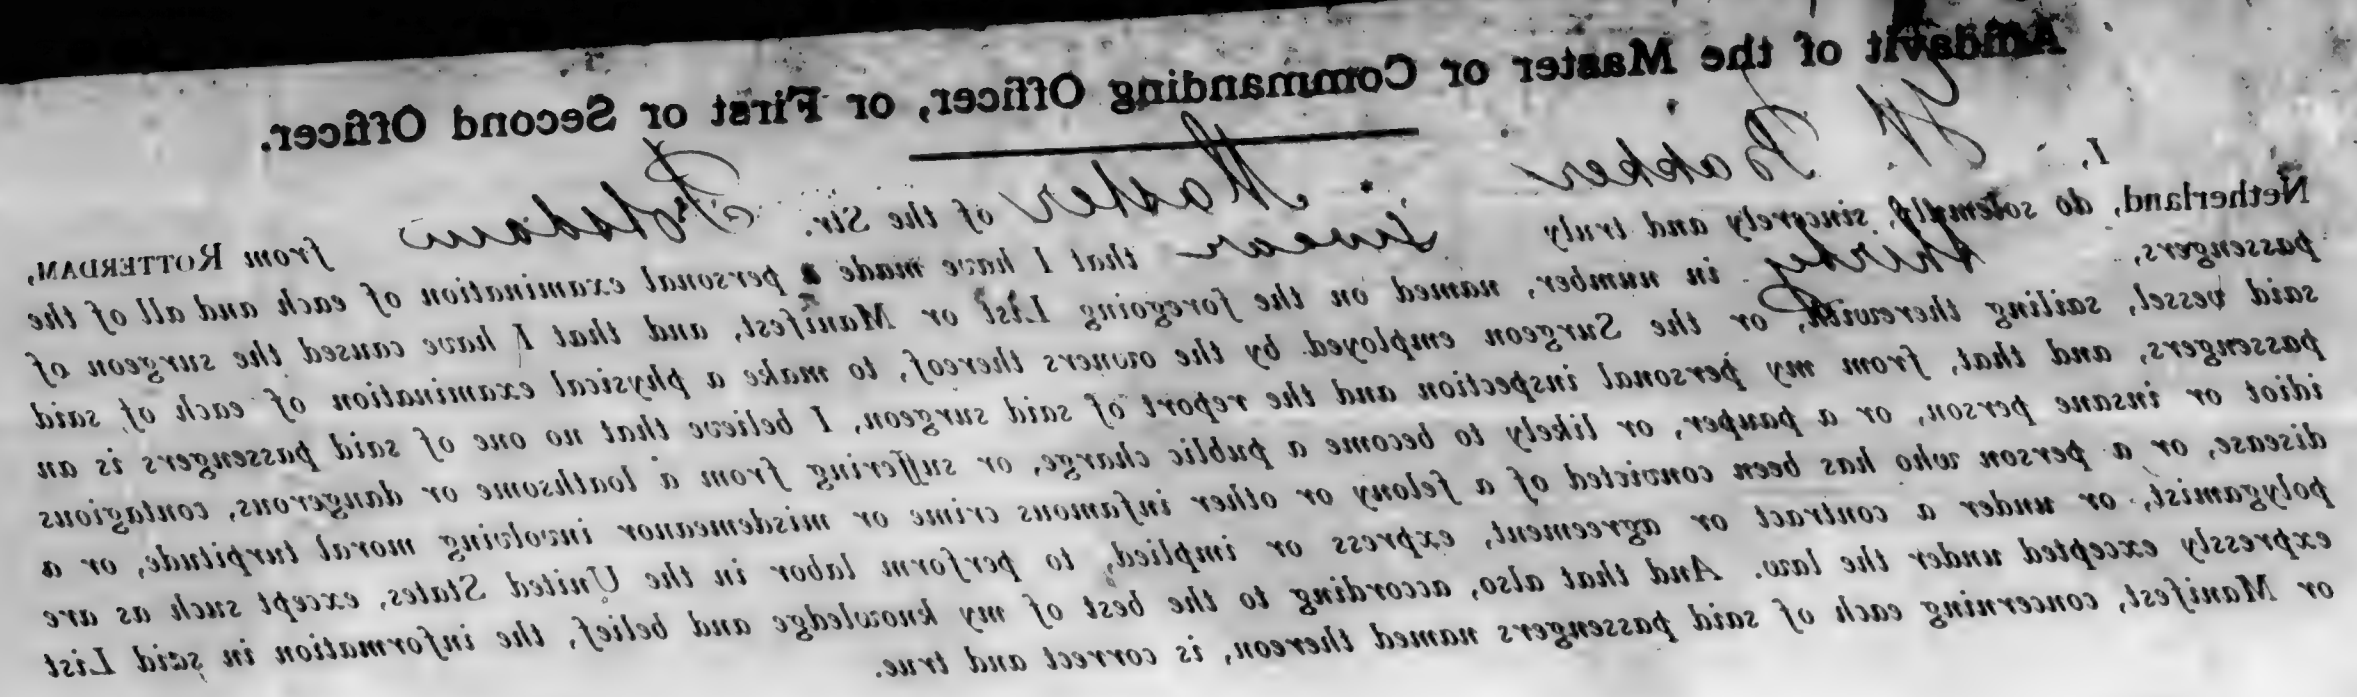 Affidavit of the Master or Commanding Officer, or First or Second Officer.
I, W. Bakker Master of the Str. Potsdam from ROTTERDAM,
Netherland, do solemnly, sincerely and truly swear that I have made a personal examination of each and all of the
passengers, thirty in number, named on the foregoing List or Manifest, and that I have caused the surgeon of
said vessel, sailing therewith, or the Surgeon employed by the owners thereof, to make a physical examination of each of said
passengers, and that, from my personal inspection and the report of said surgeon, I believe that no one of said passengers is an
idiot or insane person, or a pauper, or likely to become a public charge, or suffering from a loathsome or dangerous, contagious
disease, or a person who has been convicted of a felony or other infamous crime or misdemeanor involving moral turpitude, or a
polygamist, or under a contract or agreement, express or implied, to perform labor in the United States, except such as are
expressly excepted under the law. And that also, according to the best of my knowledge and belief, the information in said List
or Manifest, concerning each of said passengers named thereon, is correct and true.